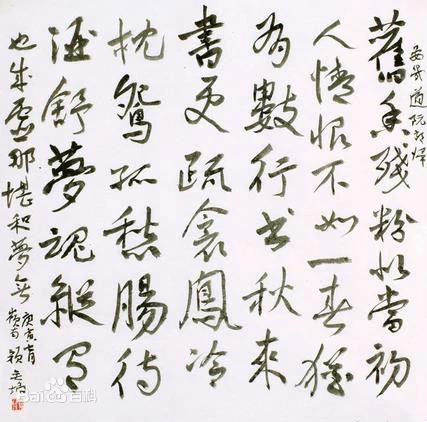 晏幾道阮郎歸
舊香殘粉似當初
人情恨不如一春猶
有數行书秋來
書更疏衾鳳冷
枕鴛孤愁腸待
酒舒夢魂縱有
也成虛那堪和夢無
庚寅七月
Baidu百科